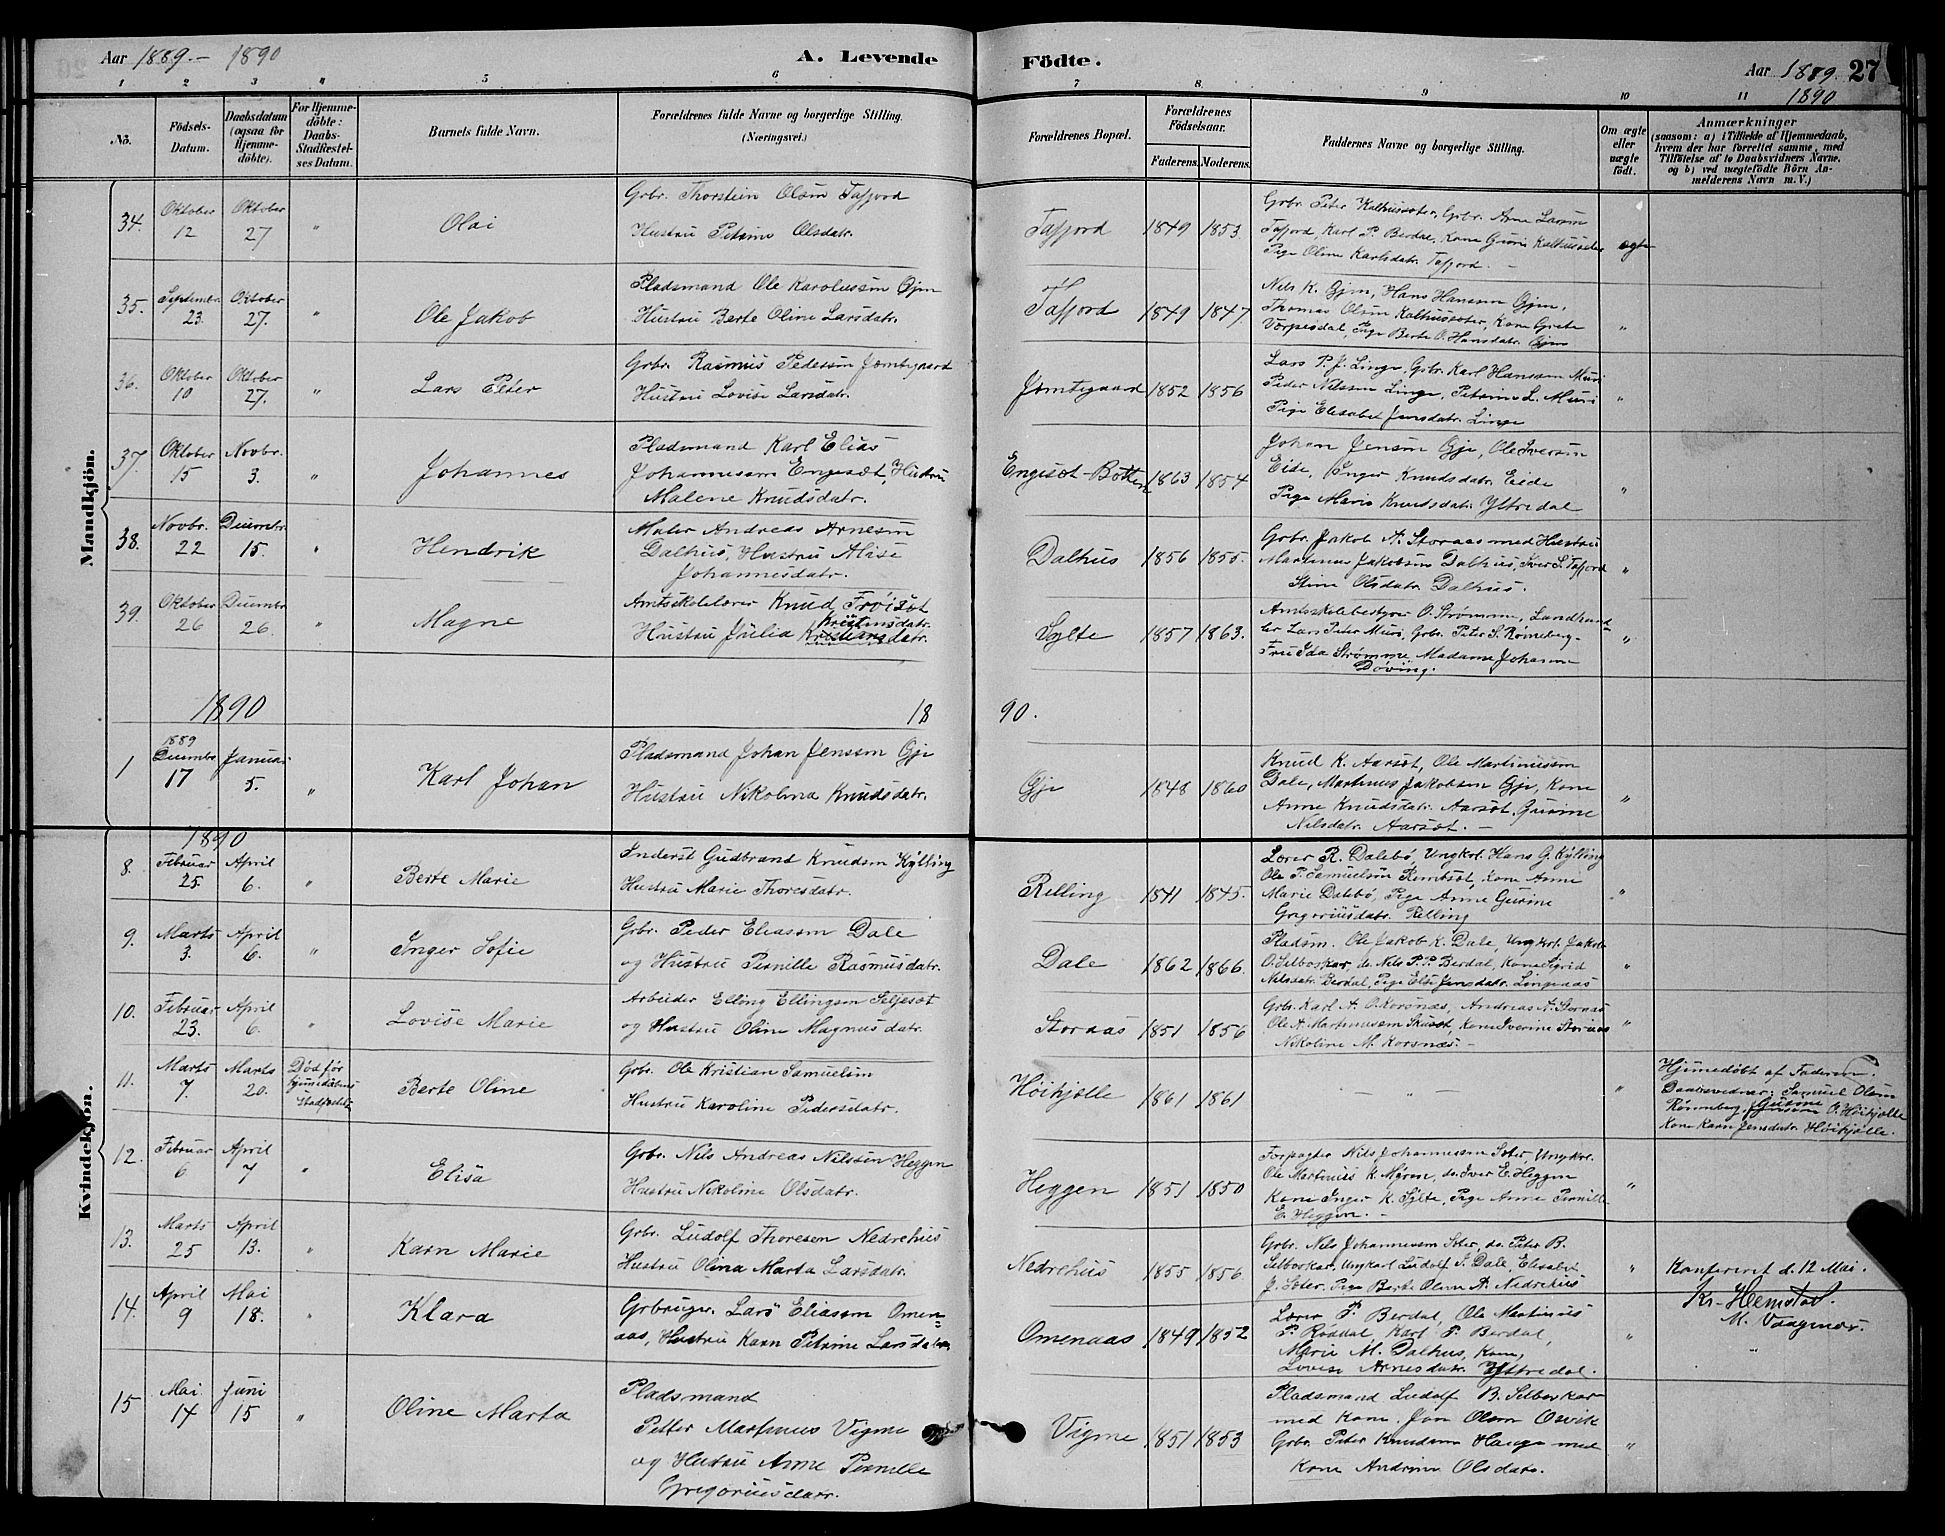 Aar 1889 – 1890
A. Levende Födte.
Aar 1889. 27
1890
1 2 3 4 5 6 7 8 9 10 11
No.
Födsels-Datum.
Daabsdatum (ogsaa for Hjemme-döbte).
For Hjemme-döbte: Daabs-Stadfestel-ses Datum.
Barnets fulde Navn.
Forældrenes fulde Navne og borgerlige Stilling.
(Næringsvei.)
Forældrenes Bopæl.
Forældrenes Födselsaar.
Faderens. Moderens.
Faddernes Navne og borgerlige Stilling.
Om ægte eller uægte födt.
Anmærkninger
(saasom: a) i Tilfælde af Hjemmedaab, hvem der har forrettet samme, med Tilföielse af to Daabsvidners Navne, og b) ved uægtefödte Börn An-melderens Navn m. V.)
Mandkjön.
34. Oktober 12 Oktober 27 " Olai
Grbr. Thorstein Olsen Tafjord
Hustru Petrine Olsdatr.
Tafjord 1849 1853.
Grbr. Peter Kalhussæter, Grbr. Arne Larsen
Tafjord, Karl P. Berdal, Kone Guri Kalhussæter
Pige Oline Karlsdatr. Tafjord. –
ægte
35. Septembr. 23. Oktober 27. " Ole Jakob
Pladsmand Ole Karolussen Gjen
Hustru Berte Oline Larsdatr.
Tafjord 1849 1847.
Nils K. Gjen, Hans Hansen Gjen,
Thomas Olsen Kalhussæter, Kone Grete
Vorpesdal, Pige Berte O. Hansdatr. Gjen
"
36. Oktober 10 Oktober 27. " Lars Peter
Grbr. Rasmus Pedersen Jemtegaard
Hustru Lovise Larsdatr.
Jemtegaard 1852 1856
Lars P. J. Linge, Grbr. Karl Hansen Muri
Peder Nilssen Linge, Petrine L. Muri
Pige Elisabet Jensdatr. Linge
"
37. Oktober 15 Novbr. 3. " Johannes
Pladsmand Karl Elias
Johannessen Engesæt, Hustru
Malene Knudsdatr.
Engesæt-Botten 1863 1854
Johan Jensen Gje, Ole Iversen
Eide, Inger Knudsdatr. Eide
Pige Marie Knudsdatr. Yttredal
"
38. Novbr. 22 Decembr. 15. " Hendrik
Maler Andreas Arnesen
Dalhus, Hustru Alise
Johannesdatr.
Dalhus 1856 1855.
Grbr. Jakob A. Storaas med Hustru
Martinus Jakobsen Dalhus, Iver S. Tafjord
Stine Olsdatr. Dalhus.
"
39. Oktober 26 Decembr. 26. " Magne
Amtsskolelærer Knud Frøisæt
Kristinsdatr.
Hustru Julia Kristiansdatr.
Sylte 1857 1863.
Amtsskolebestyrer O. Strømme, Landhand-
ler Lars Peter Muri, Grbr. Peter S. Rønneberg-
Fru Ida Strømme, Madame Johanne
Døving.
"
1890 1890.
1 1889 Decembr 17 Januar 5. " Karl Johan
Pladsmand Johan Jenssen Gje
Hustru Nikolina Knudsdatr.
Gje 1848 1860
Knud K. Aarsæt, Ole Martinussen
Dale, Martinus Jakobsen Gje, Kone
Anne Knudsdatr. Aarsæt, Gurine
Nilsdatr. Aarsæt. –
"
Kvindekjön.
1890
8. Februar 25. April 6. " Berte Marie
Inderst Gudbrand Knudsen Kylling
Hustru Marie Thoresdatr.
Relling 1841 1845.
Lærer R. Dalebø, Ungkrl. Hans G. Kylling
Ole P. Samuelsen Remtsæt, Kone Anne
Marie Dalebø, Pige Anne Gurine
Gregoriusdatr. Relling
"
9. Marts 3. April 6. " Inger Sofie
Grbr. Peder Eliasen Dale
og Hustru Pernille Rasmusdatr.
Dale 1862 1866.
Pladsm. Ole Jakob K. Dale, Ungkrl. Jakob
O. Selboskar, do. Nils P. P. Berdal, Kone Sigrid
Nilsdatr. Berdal, Pige Else Jensdatr. Lingeaas
"
10. Februar 23. April 6. " Lovise Marie
Arbeider Elling Ellingsen Seljesæt
og Hustru Oline Magnusdatr.
Storaas 1851 1856
Grbr. Karl A. O. Korsnæs, Andreas A. Storaas
Ole A. Martinussen Skusæt, Kone Iverine Storaas
Nikoline M. Korsnæs. –
"
11. Marts 7. Marts 20. Død før hjemedåbens Stadfæstelse Berte Oline
Grbr. Ole Kristian Samuelsen
Hustru Karoline Pedersdatr.
Høikjølle 1861 1861
– " –
"
Hjemedøbt af Faderen.
Daabsvidner: Samuel Olsen
Rønneberg, Gurine O. Høikjølle
Kone Karn Jensdatr. Høikjølle.
12. Februar 6 April 7 " Elisa
Grbr. Nils Andreas Nilssen Heggen
Hustru Nikoline Olsdatr.
Heggen 1851 1850
Forpagter Nils Johannessen Sæter, Ungkrl.
Ole Martinus K. Myren, do. Iver E. Heggen
Kone Inger K. Sylte, Pige Anne Pernille
E. Heggen. –
"
13. Marts 25 April 13. " Karn Marie
Grbr. Ludolf Thoresen Nedrehus
Hustru Olina Marta Larsdatr.
Nedrehus 1855 1856.
Grbr. Nils Johannessen Sæter, do. Peter B.
Selboskar, Ungkarl Ludolf I. Dale, Elisabet
J. Sæter, Pige Berte Oline A. Nedrehus
"
Konfereret d. 12 Mai.
Kr. Hemstad.
M. Vaagenes.
14. April 9 Mai 18. " Klara
Grbruger. Lars Eliasen Omen-
aas, Hustru Karn Petrine Larsdatr.
Omenaas 1849 1852
Lærer P. Berdal, Ole Martinus
P. Rødal, Karl P. Berdal,
Marie M. Dalhus, Kone,
Lovise Arnesdatr. Yttredal.
"
15 Mai 14 Juni 15 " Oline Marta
Pladsmand
Petter Martinus Vigme
og Hustru Anne Pernille
Gregoriusdatr.
Vigme 1851 1853
Pladsmand Ludolf B. Selboskar
med Kone, Jon Olsen Osvik
Grbr. Peter Knudsen Hauge med
Kone Andrine Olsdatr.
"